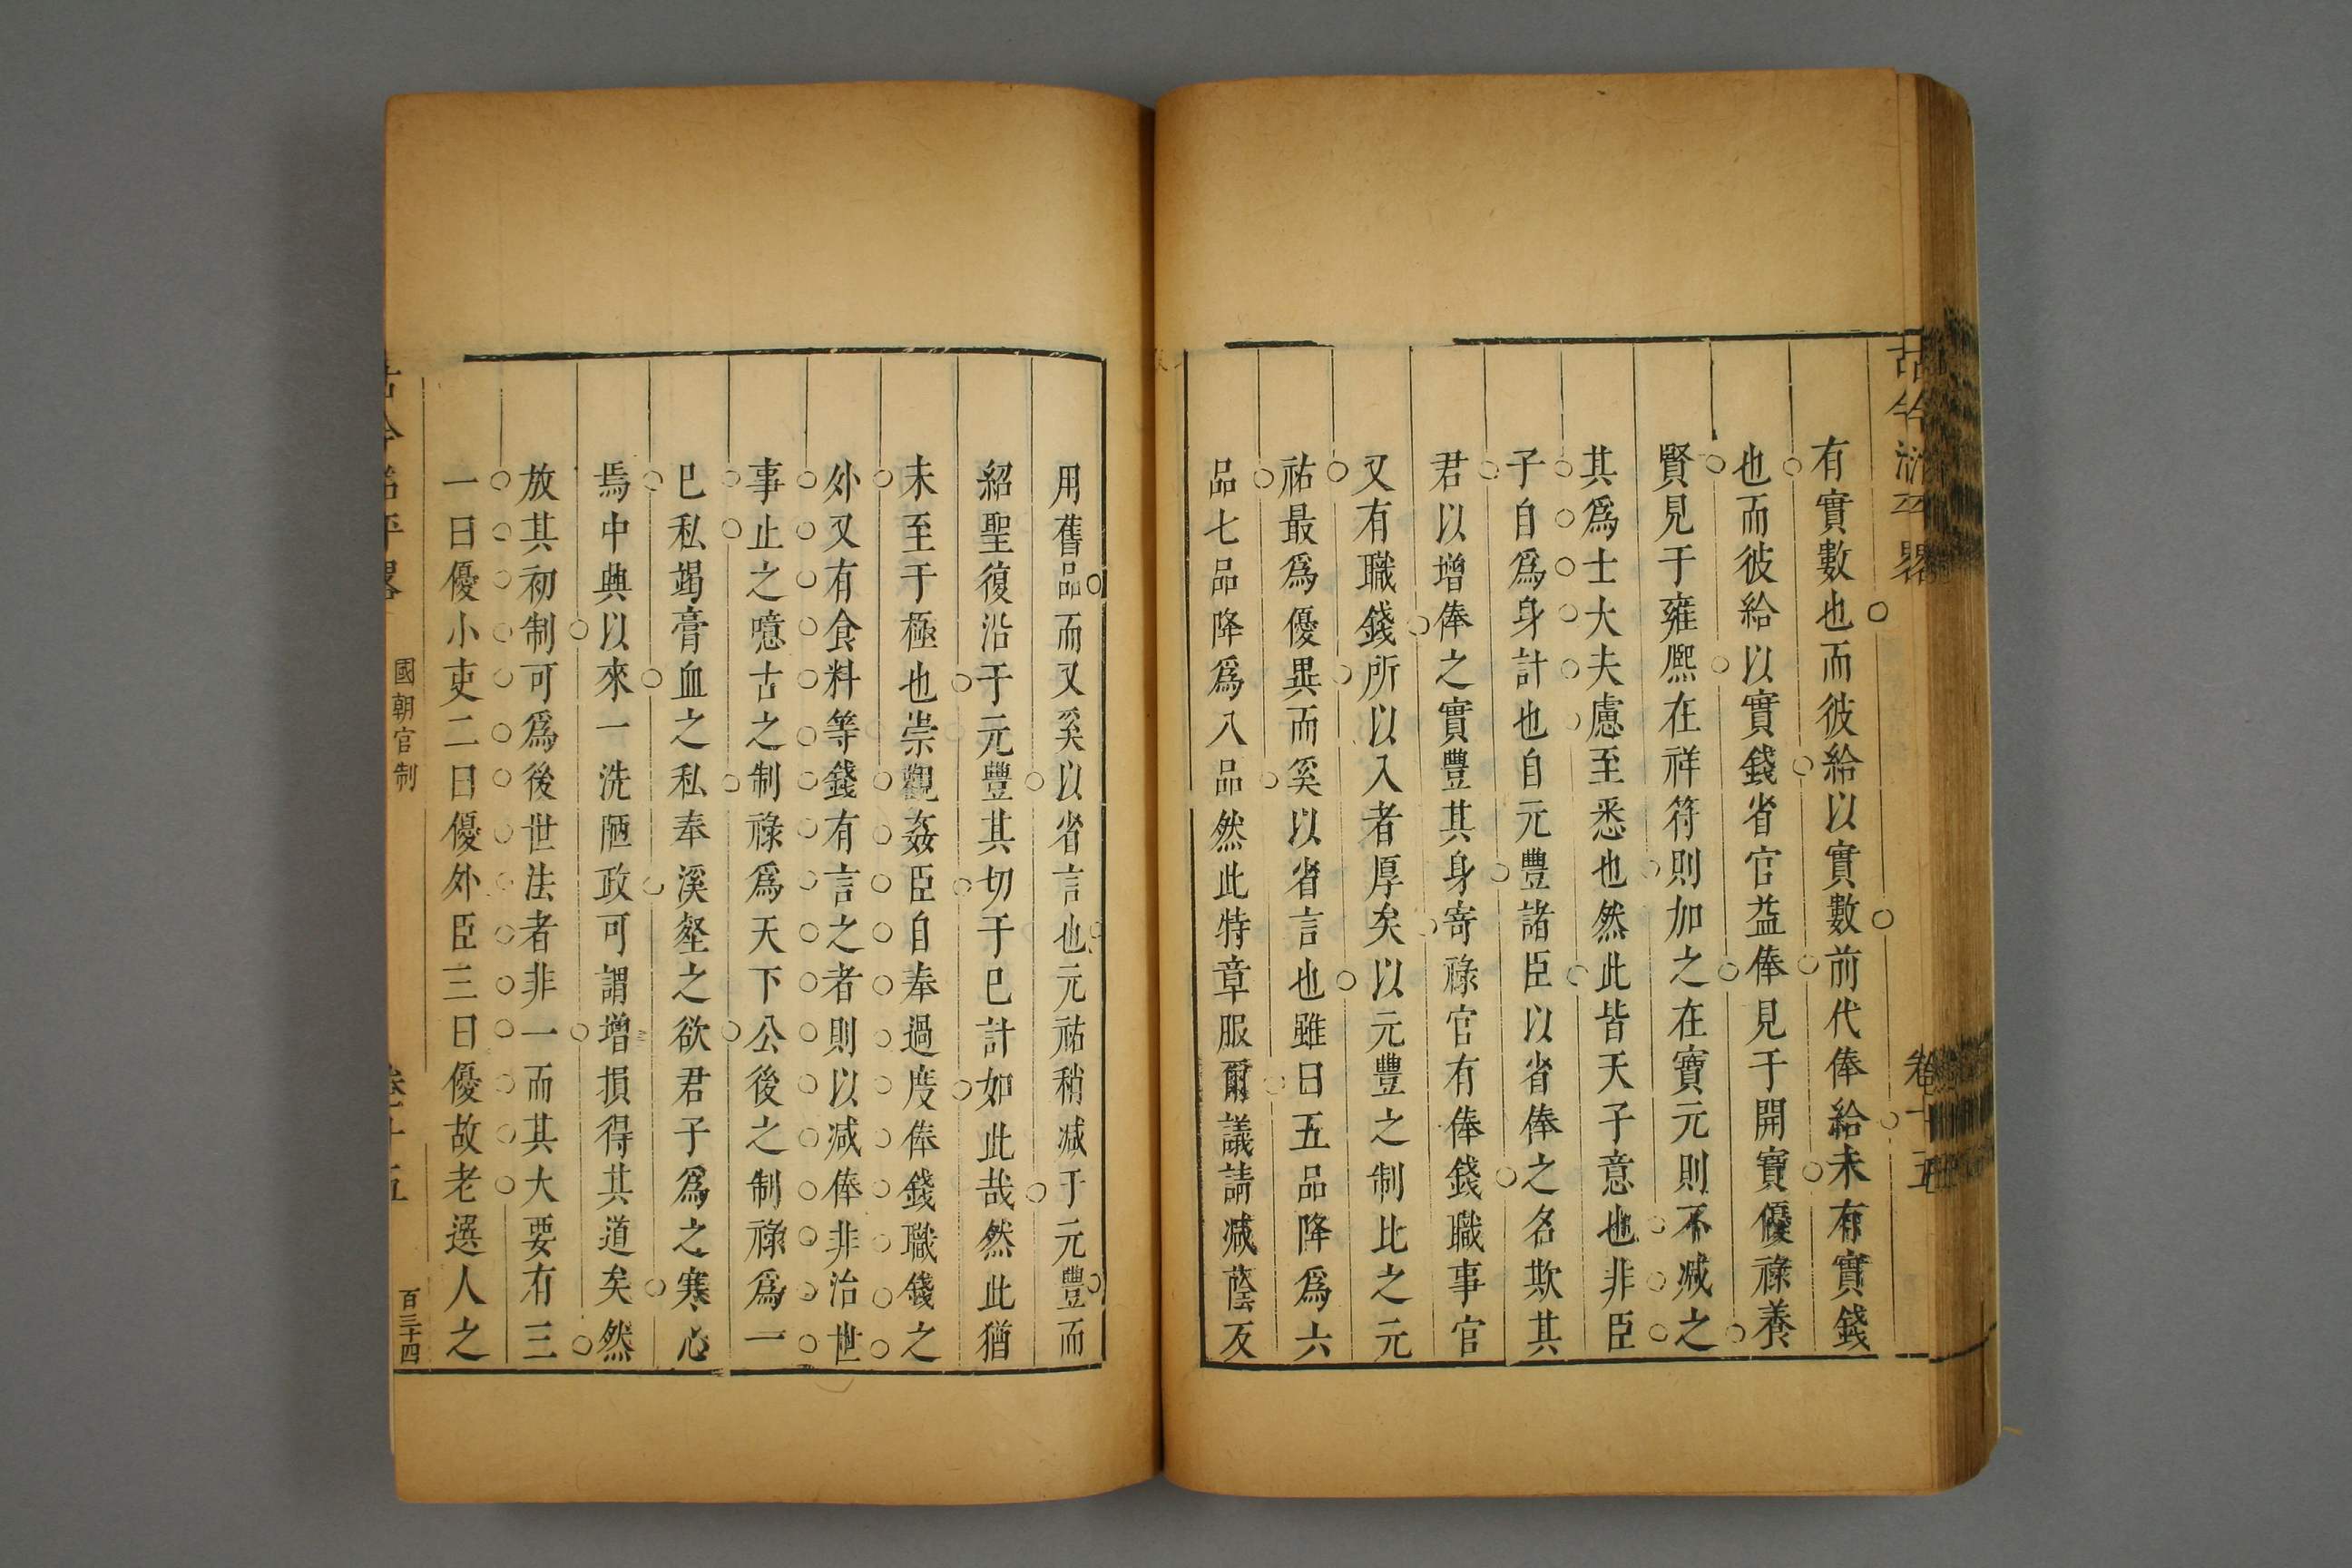 古今治平畧
卷十五
有實數也而彼給以實數前代俸給未有實錢
也而彼給以實錢省官益俸見于開寶優祿養
賢見于雍熈在祥符則加之在寶元則不减之
其爲士大夫慮至悉也然此皆天子意也非臣
子自爲身計也自元豐諸臣以省俸之名欺其
君以增俸之實豐其身寄祿官有俸錢職事官
又有職錢所以入者厚矣以元豐之制比之元
祐最爲優異而奚以省言也雖曰五品降爲六
品七品降爲八品然此特章服爾議請减蔭仄
用舊品而又奚以省言也元祐稍减于元豐而
紹聖復沿于元豐其切于巳計如此哉然此猶
未至于極也崇觀姦臣自奉過度俸錢職錢之
外又有食料等錢有言之者則以减俸非治世
事止之噫古之制祿爲天下公後之制祿爲一
巳私竭膏血之私奉溪壑之欲君子爲之寒心
焉中興以來一洗陋政可謂增損得其道矣然
放其初制可爲後世法者非一而其大要有三
一曰優小吏二曰優外臣三曰優故老選人之
古今治平畧
國朝官制
卷十五
百三十四